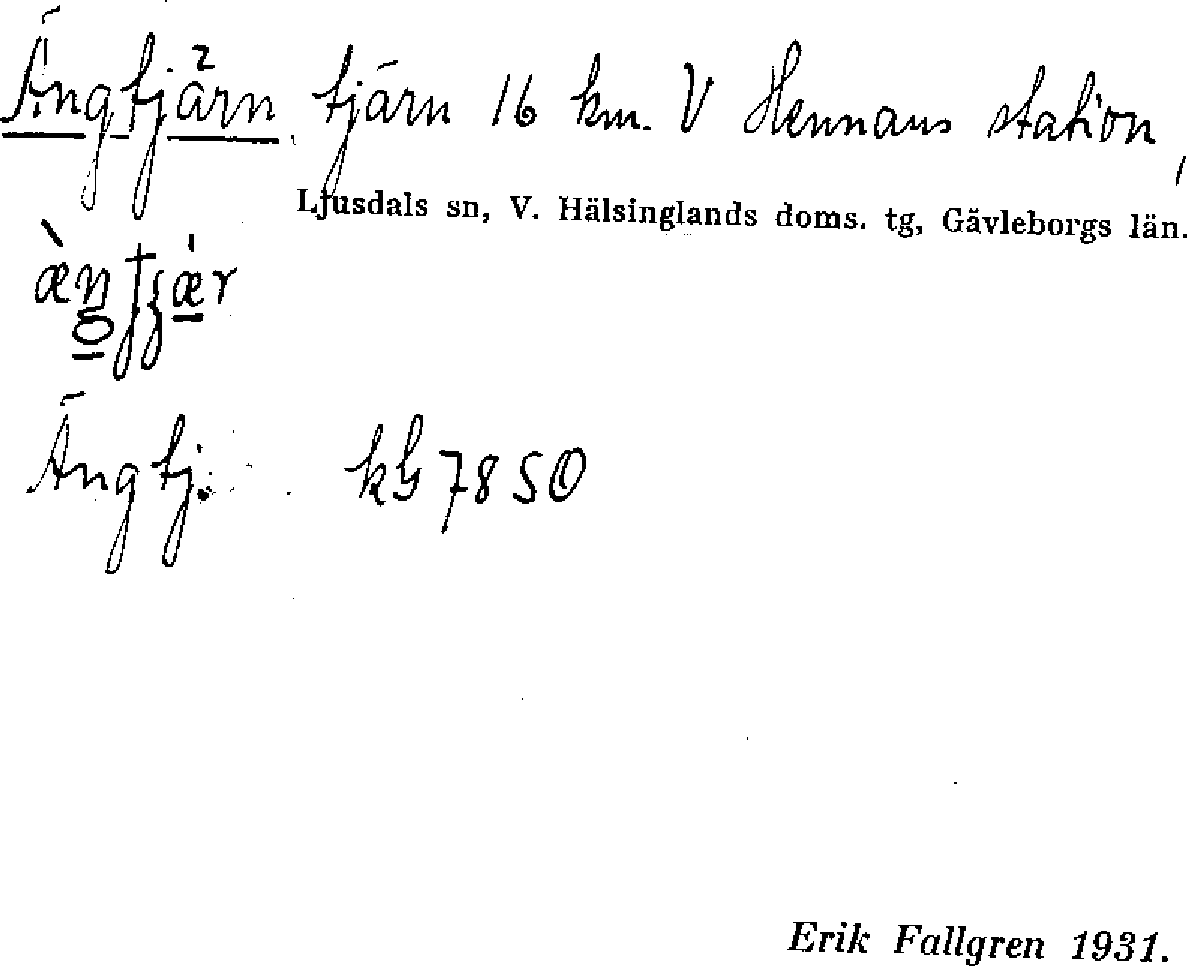 Ängtjärn. tjärn 16 km. V Hennans station,
Ljusdals sn, V. Hälsinglands doms. tg, Gävleborgs län.
Ängtj. kG 7850
Erik Fallgren 1931.